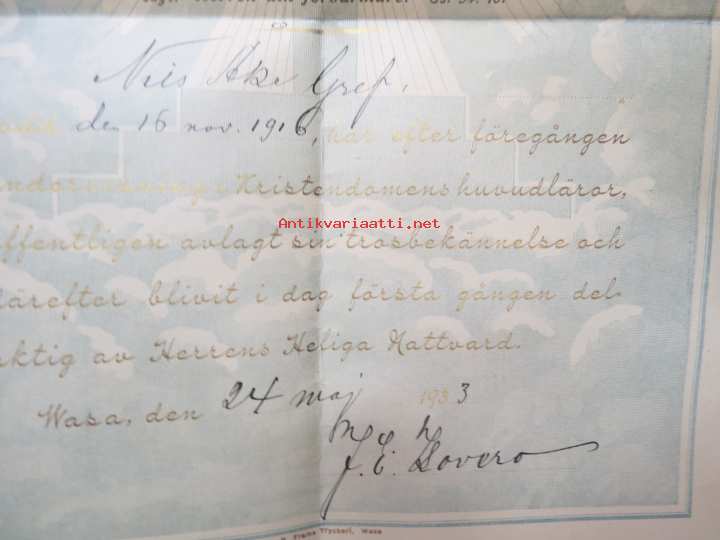 Nils Åke Gref.
den 16 nov. 1916, har efter föregången
i Kristendomens huvudläror,
offentligen avlagt sin trosbekännelse och
därefter blivit i dag första gången del
aktig av Herrens Heliga Nattvard.
Antikvariaatti.net
Wasa, den 24 maj 1933
J. E. Hovero
Wasa